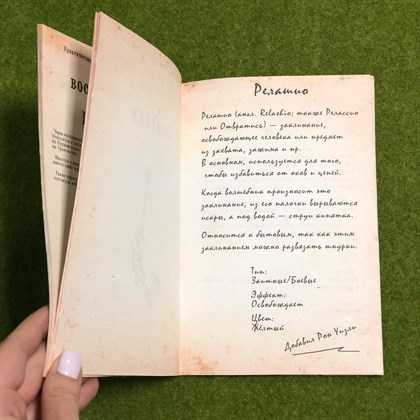 ВОС
Релашио
Релашио (англ. Relashio; также Релассио
или Отвратись) — заклинание,
освобождающее человека или предмет
из захвата, зажима и пр.
В основном, используется для того,
чтобы избавиться от оков и цепей.
Когда волшебник произносит это
заклинание, из его палочки вырываются
искры, а под водой — струи кипятка.
Относится к бытовым, так как этим
заклинанием можно развязать шнурки.
Тип:
Защитные/Боевые
Эффект:
Освобождает
Цвет:
Жёлтый
Добавил Рон Уизли